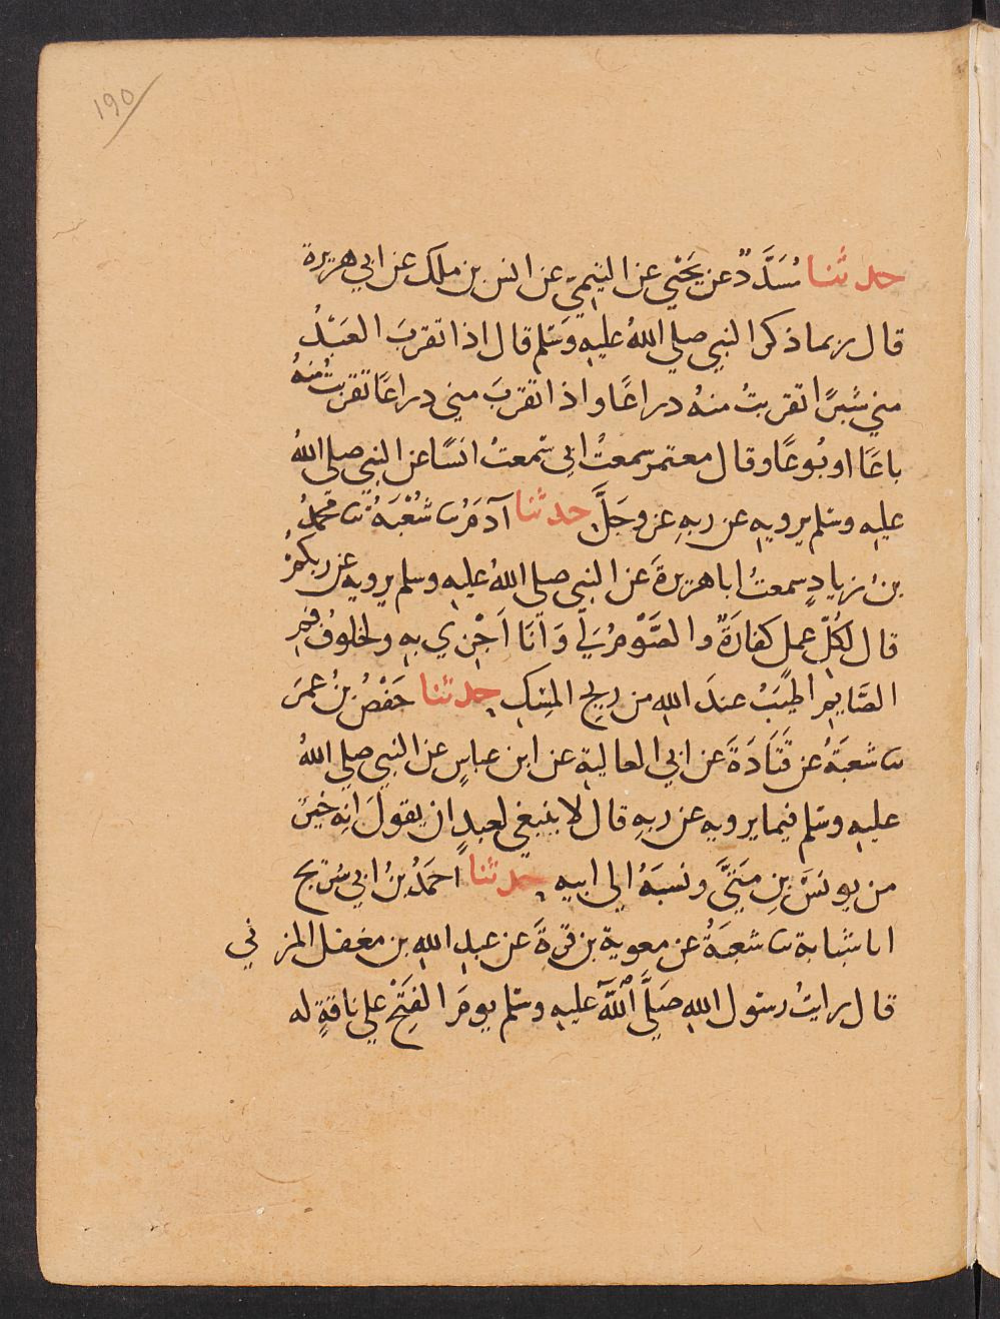 ١٩٥
حدثنا مُسَدَّدٌ عن يَحْيٰي عن التيميِّ عن انس بن ملك عن ابي هريرة
قال ربما ذكر النبي صلي اللهُ عليهِ وَسَلم قال اذا تقربَ العَبْدُ
مني شبرًا تقربتُ منهُ دراعًا واذا تقربَ مني دراعًا تقربتُ منهُ
باعًا او بُوعًا وقال معتمر سمعتُ ابي سَمعتُ انسًا عن النبي صلي اللهُ
عليه وسَلم يرويهِ عن ربهِ عز وجَلَّ حدثنا آدَمُ ثنا شُعْبَةُ ثنا محمدُ
بنُ زيادٍ سمعتُ ابا هريرةَ عن النبي صلي اللهُ عليه وسلم يرويه عن ربكمْ
قال لكُلِّ عمل كفارَةٌ والصَّوْمُ لِي وَانَا اَجْزي بهِ ولخلوفُ فمِ
الصَّايمِ اطيَبُ عندَ اللهِ من ريحِ المِسْكِ حدثنا حَفْصُ بنُ عمرَ
ثنا شعبَةُ عن قَتَادَةَ عن ابي العاليةِ عن ابن عباسٍ عن النبي صلي اللهُ
عليهِ وسَلم فيما يرويه عن ربهِ قال لا ينبغي لعبدٍ ان يقولَ انه خيرٌ
من يونسَ بنِ مَتَّىٰ ونسبَهُ الي ابيه حدثنا احمَدُ بنُ ابي سُريج
انا شبابة ثنا شعبَةُ عن معوية بن قرةَ عن عبدِ اللهِ بن مغفل المزني
قال رايتُ رسَول اللهِ صَلَّي اللهُ عليه وسَلم يومَ الفَتْحِ علي ناقةٍ له